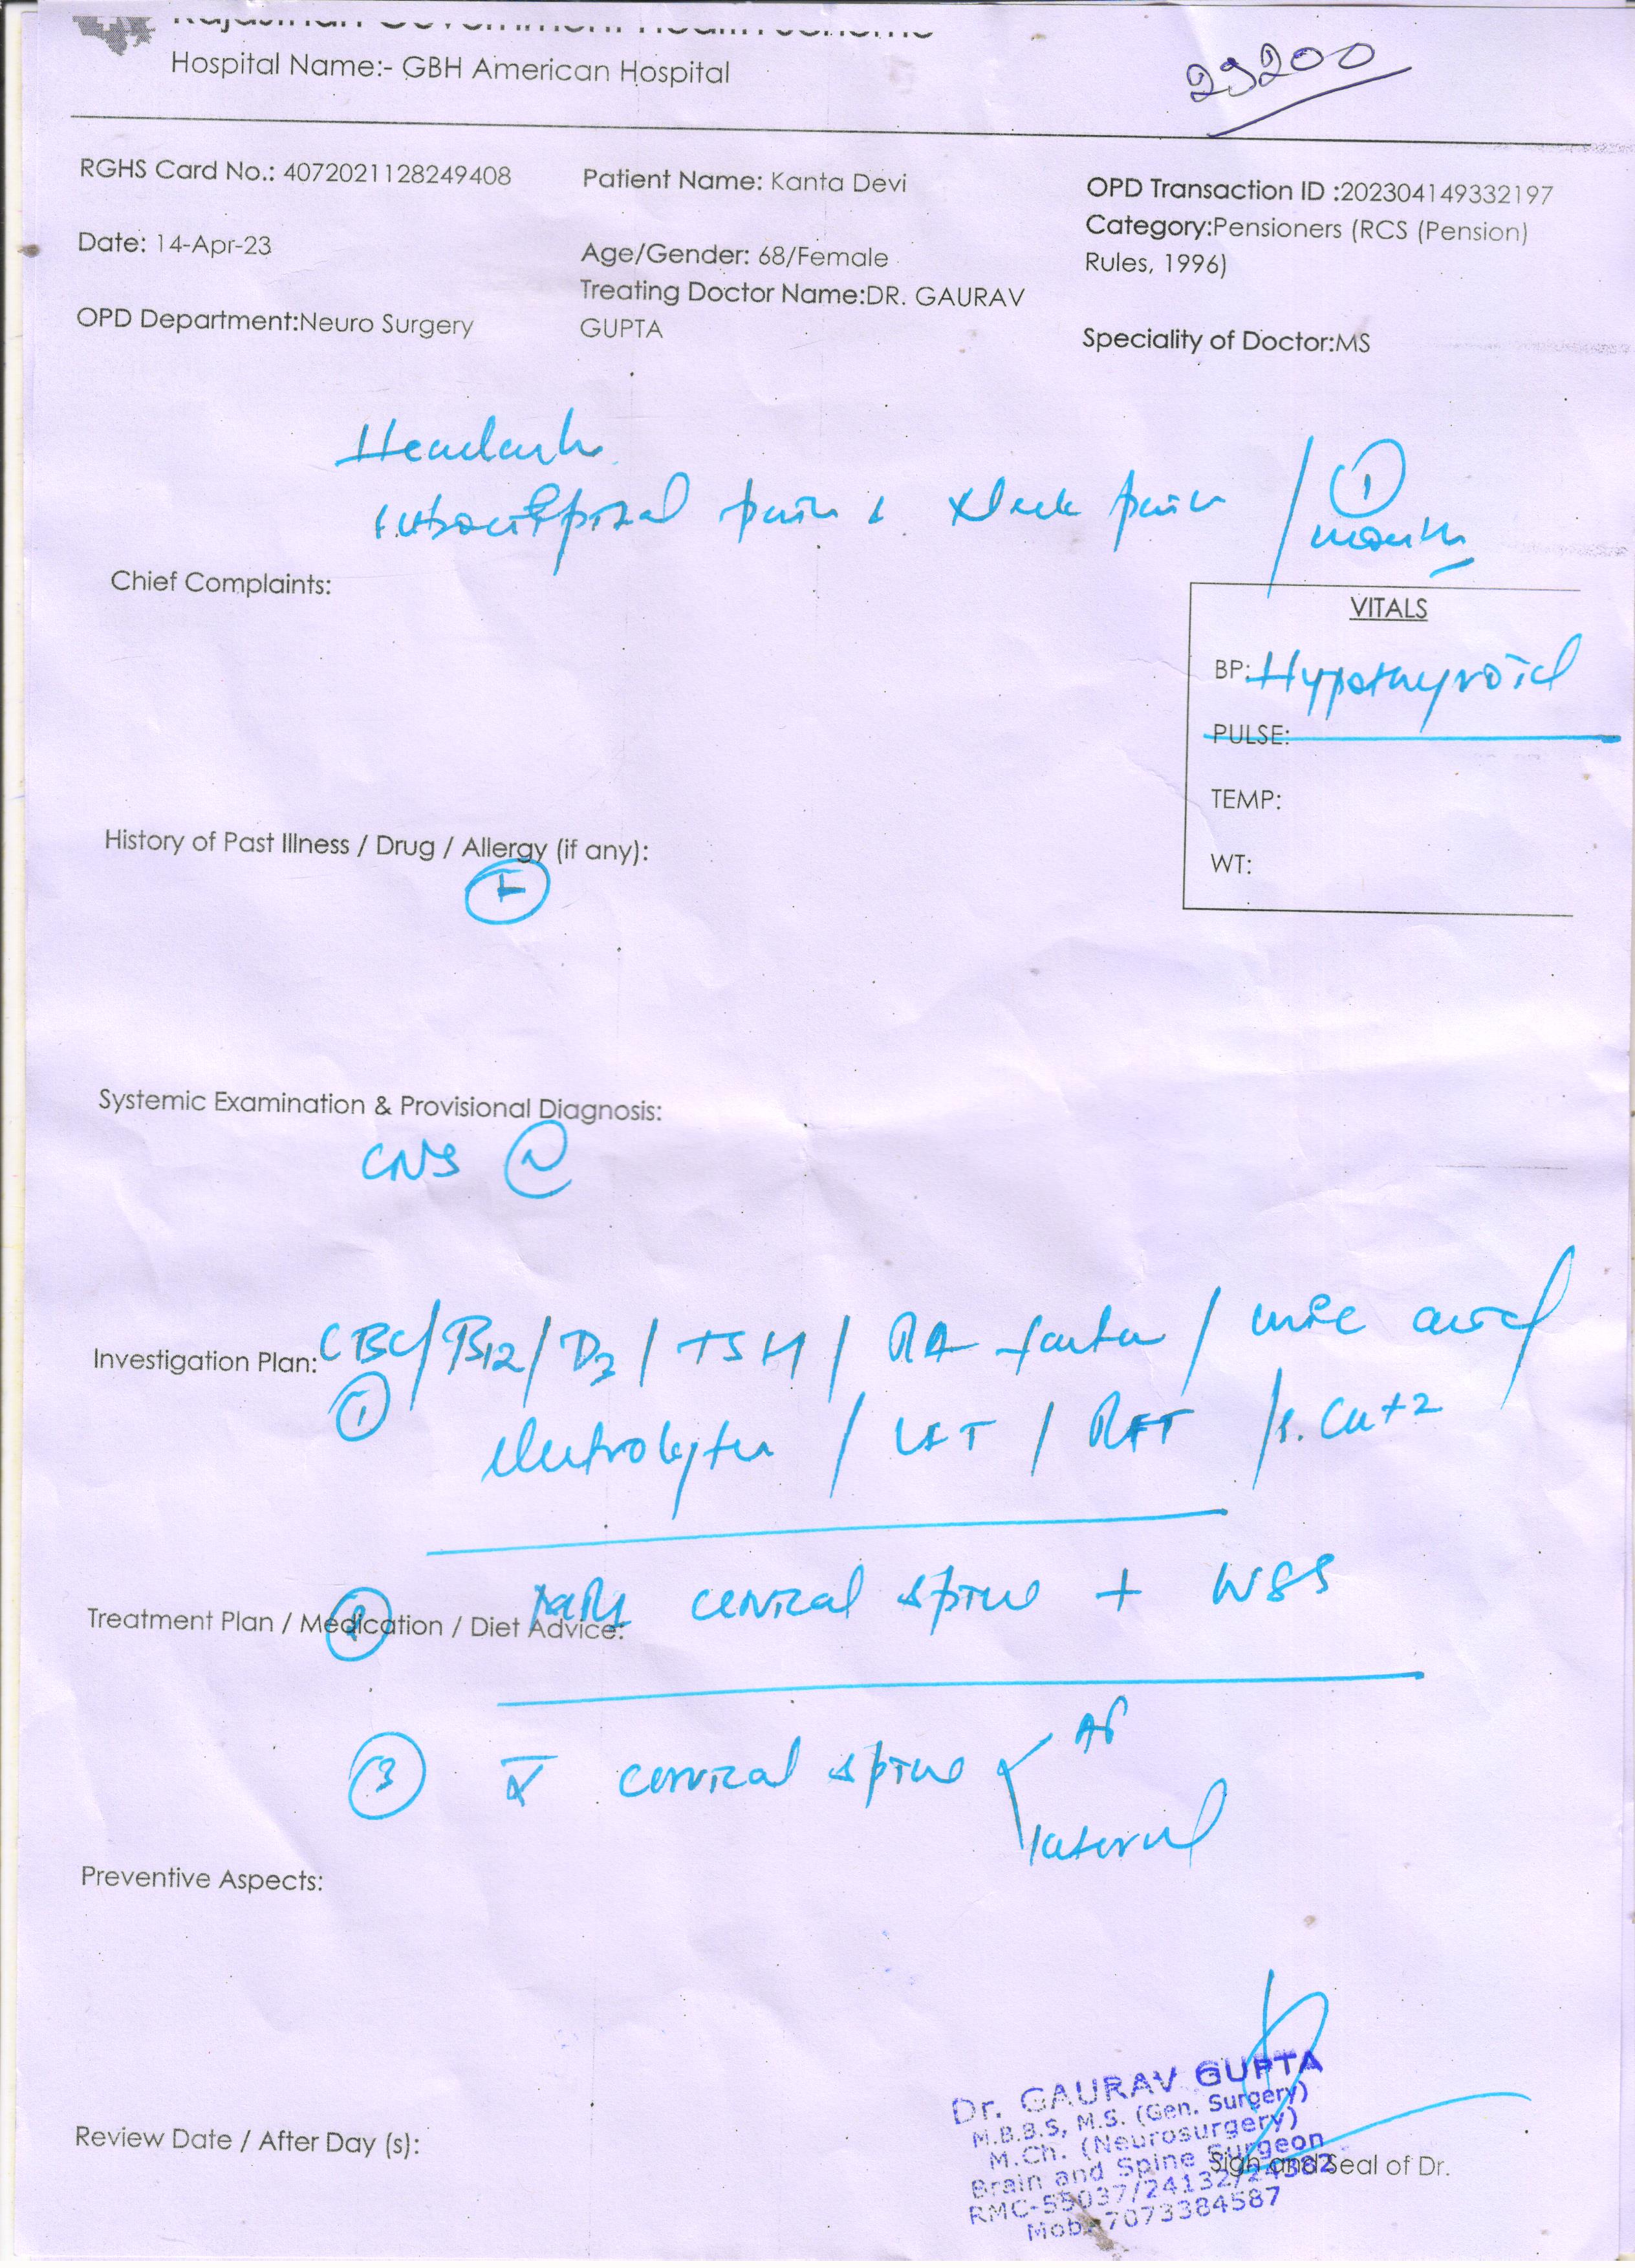 Rajasthan Government Health Scheme
Hospital Name:- GBH American Hospital
29200
RGHS Card No.: 4072021128249408
Patient Name: Kanta Devi
OPD Transaction ID :202304149332197
Category:Pensioners (RCS (Pension)
Rules, 1996)
Date: 14-Apr-23
Age/Gender: 68/Female
Treating Doctor Name:DR. GAURAV
GUPTA
OPD Department:Neuro Surgery
Speciality of Doctor:MS
Headache
suboccipital pain & Neck pain / 1
month
Chief Complaints:
VITALS
BP: Hypothyroid
PULSE:
TEMP:
WT:
History of Past Illness / Drug / Allergy (if any):
Systemic Examination & Provisional Diagnosis:
CNS N
Investigation Plan: CBC/B12/D3/TSH/RA factor/uric acid
1
electrolytes / LFT / RFT / S.Ca+2
2 MRI cervical spine + WSS
Treatment Plan / Medication / Diet Advice:
3 X cervical spine AP
lateral
Preventive Aspects:
Dr. GAURAV GUPTA
M.B.B.S, M.S. (Gen. Surgery)
M.Ch. (Neurosurgery)
Brain and Spine Surgeon
RMC-55037/24132/24382
Mob.-7073384587
Review Date / After Day (s):
Sign and Seal of Dr.